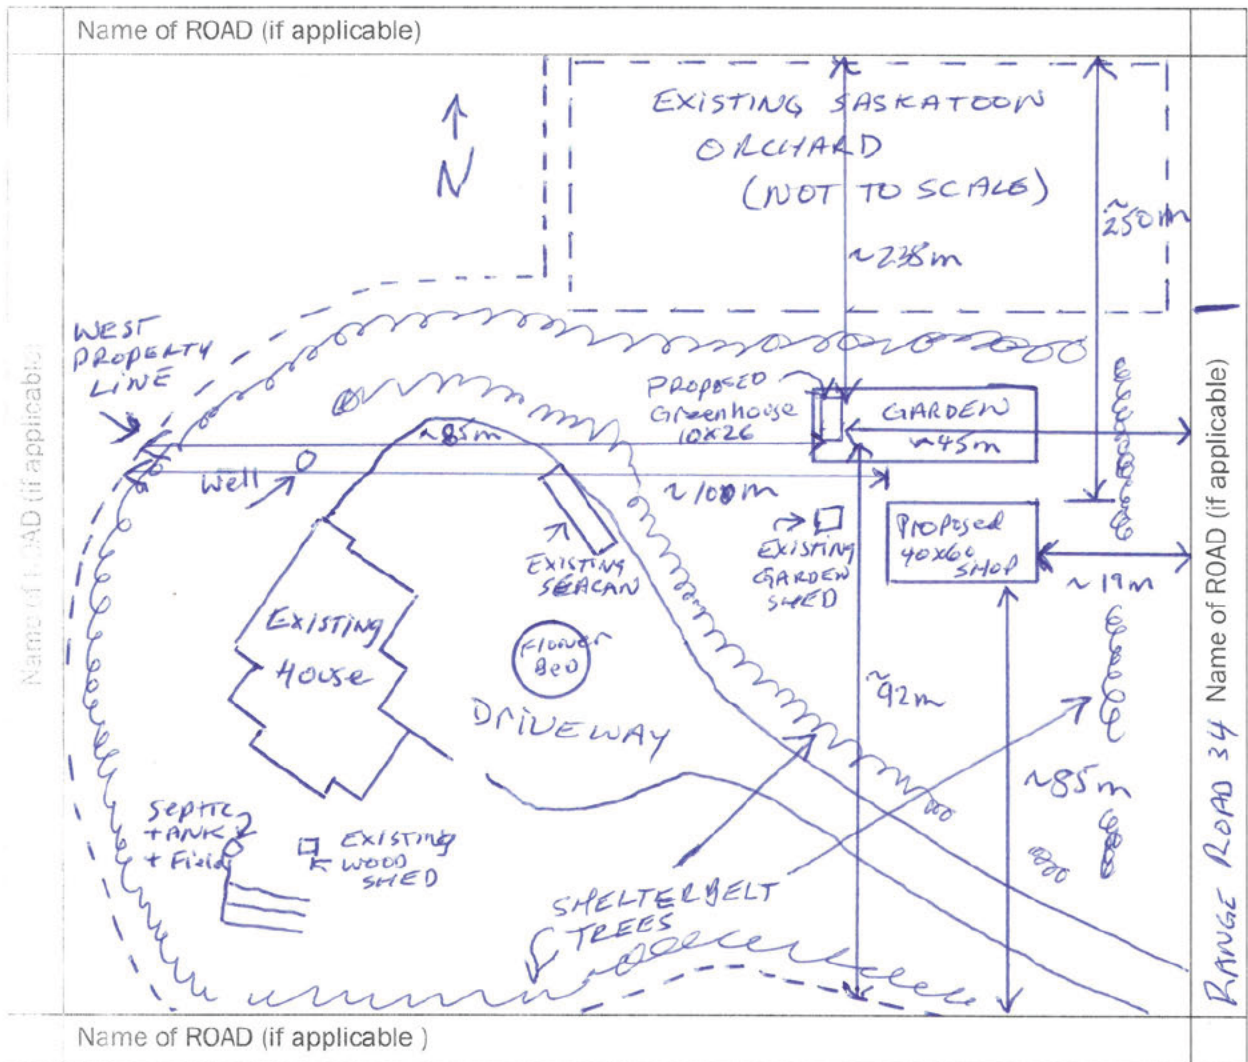 Name of ROAD (if applicable)
EXISTING SASKATOON
ORCHARD
(NOT TO SCALE)
N
~250m
~238m
WEST
PROPERTY
LINE
PROPOSED
Greenhouse
10x26
GARDEN
~45m
~85m
Well
~100m
EXISTING
SEACAN
EXISTING
GARDEN
SHED
PROPOSED
40x60
SHOP
~19m
EXISTING
HOUSE
Flower
BED
DRIVEWAY
~92m
~85m
SEPTIC
TANK
+ Field
EXISTING
WOOD
SHED
SHELTERBELT
TREES
Name of ROAD (if applicable)
RANGE ROAD 34 Name of ROAD (if applicable)
Name of ROAD (if applicable )